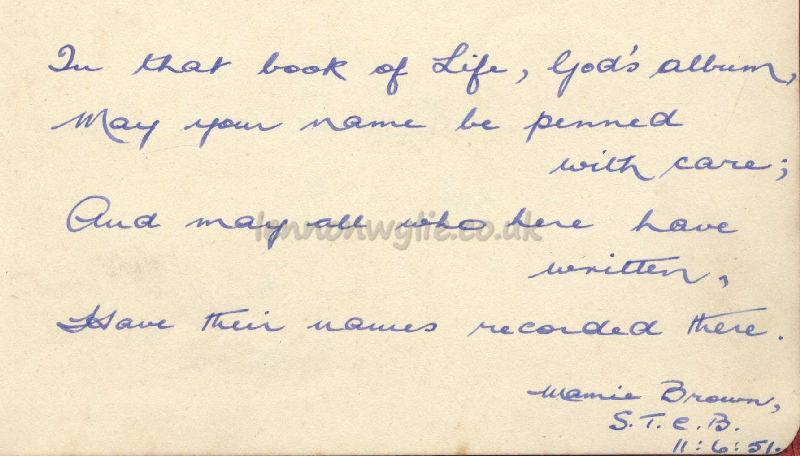 In that book of Life, God's album,
May your name be penned
with care;
And may all who here have
lennonwylie.co.uk
written,
Have their names recorded there.
Mamie Brown,
S.T.C.B.
11:6:51.